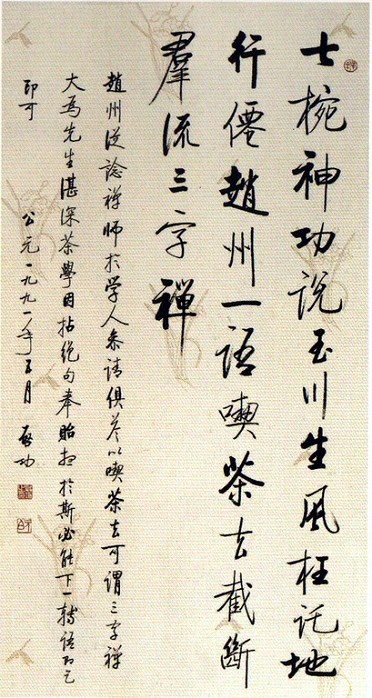 七椀神功説玉川生風枉託地
行僊趙州一語喫茶去截斷
羣流三字禪
趙州從諗禪師於学人參請俱答以喫茶去可謂三字禪
大為先生湛深茶學因拈絕句奉貽想於斯必能下一轉語即乞
印可 公元一九九一年 月 啟功